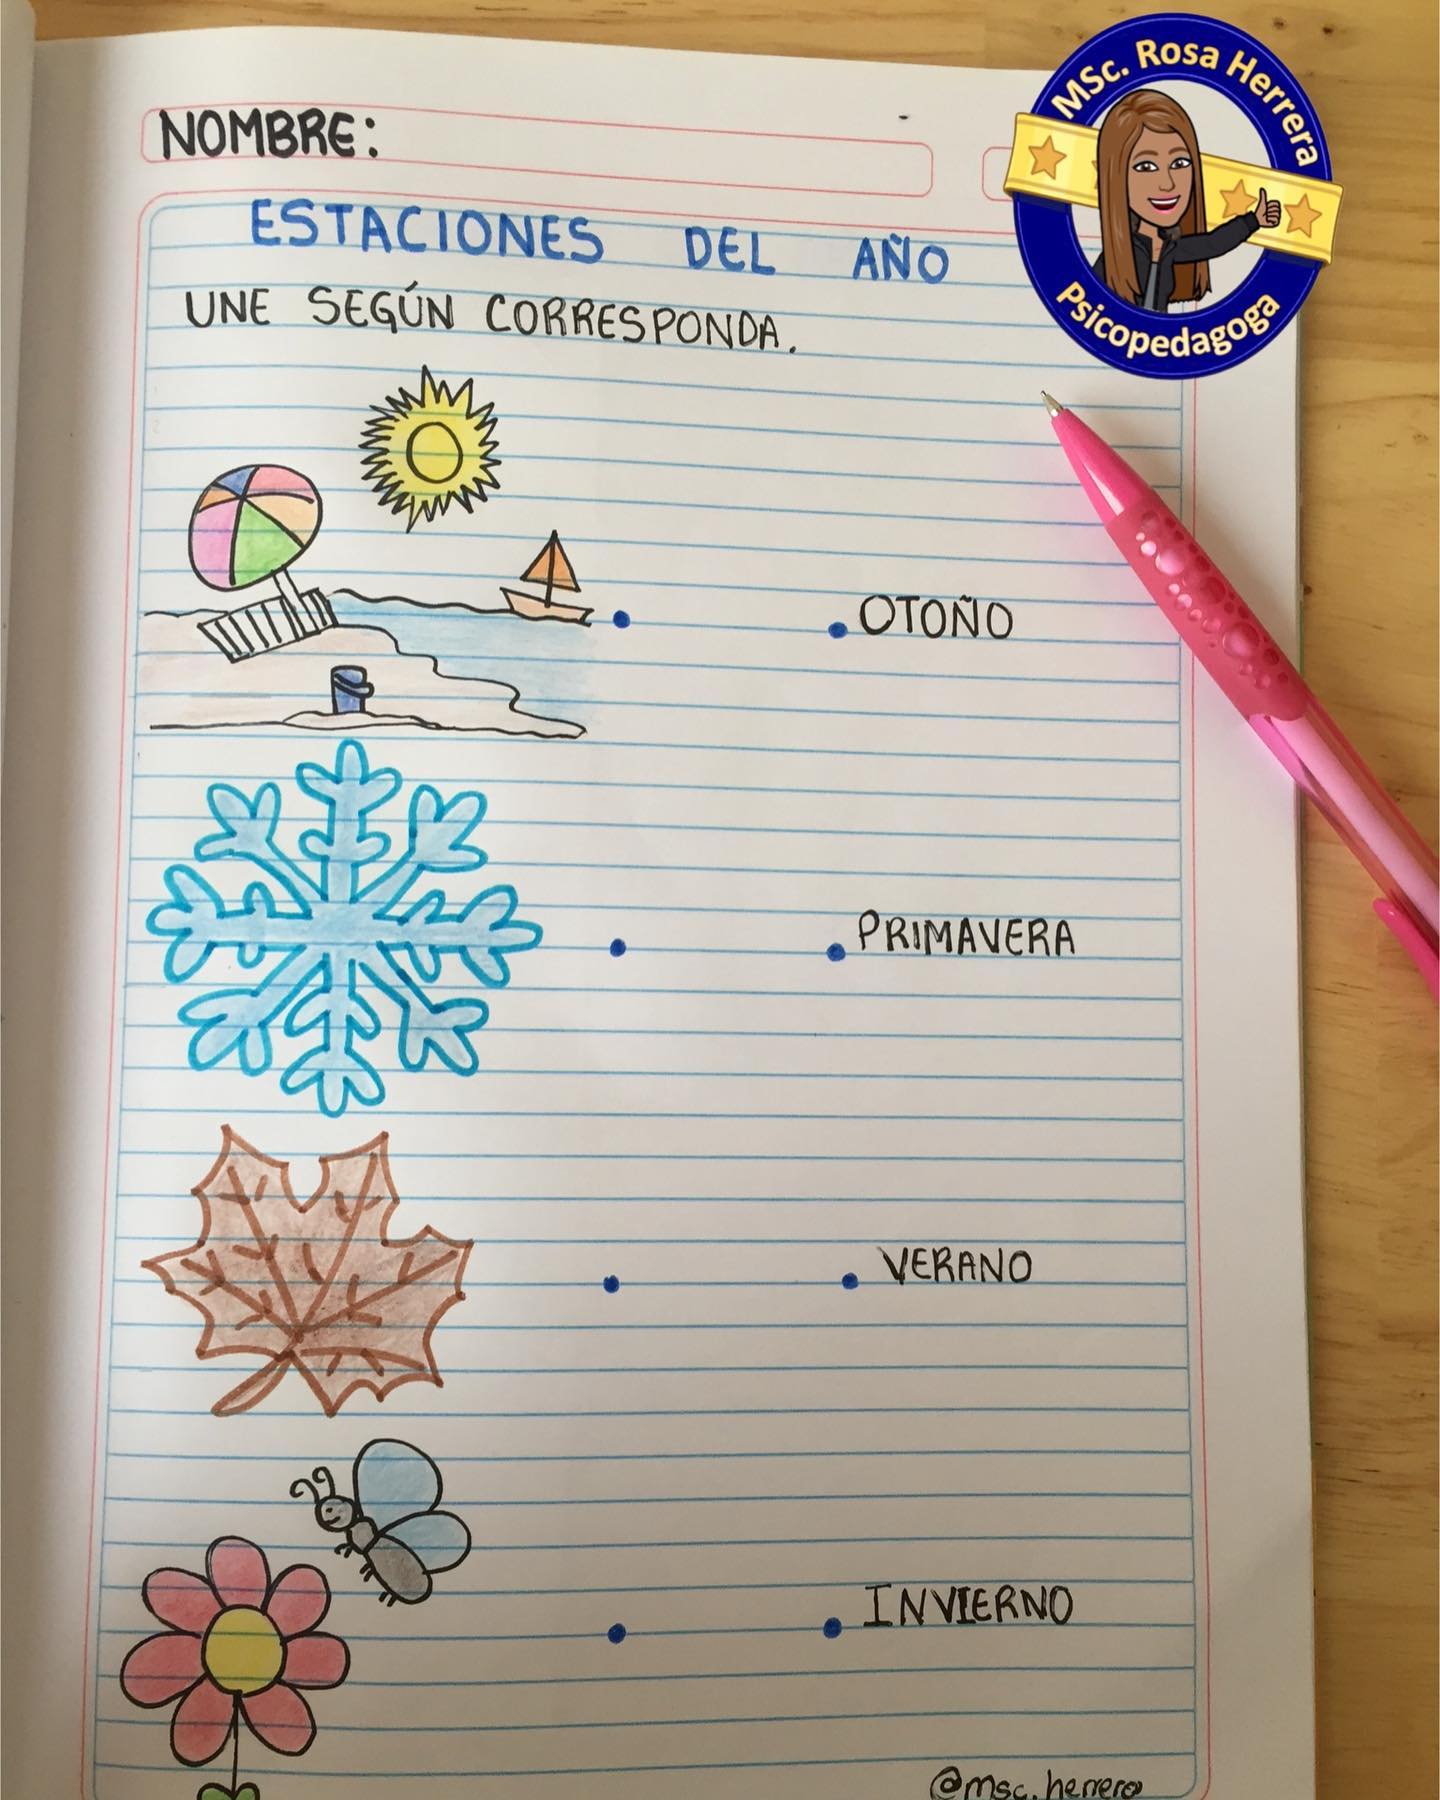 MSc. Rosa Herrera
Psicopedagoga
NOMBRE:
ESTACIONES DEL AÑO
UNE SEGÚN CORRESPONDA.
OTOÑO
PRIMAVERA
VERANO
INVIERNO
@msc.herrera